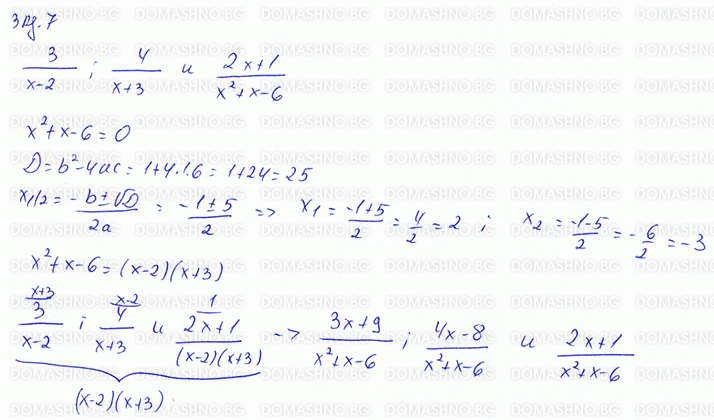 Зад. 7
3/(x-2) ; 4/(x+3) и (2x+1)/(x²+x-6)
x²+x-6=0
D=b²-4ac=1+4.1.6=1+24=25
x1/2=(-b±√D)/2a=(-1±5)/2 => x₁=(-1+5)/2=4/2=2 ; x₂=(-1-5)/2=-6/2=-3
x²+x-6=(x-2)(x+3)
x+3 x-2 1
3/(x-2) ; 4/(x+3) и (2x+1)/((x-2)(x+3)) -> (3x+9)/(x²+x-6) ; (4x-8)/(x²+x-6) и (2x+1)/(x²+x-6)
(x-2)(x+3)
DOMASHNO.BG